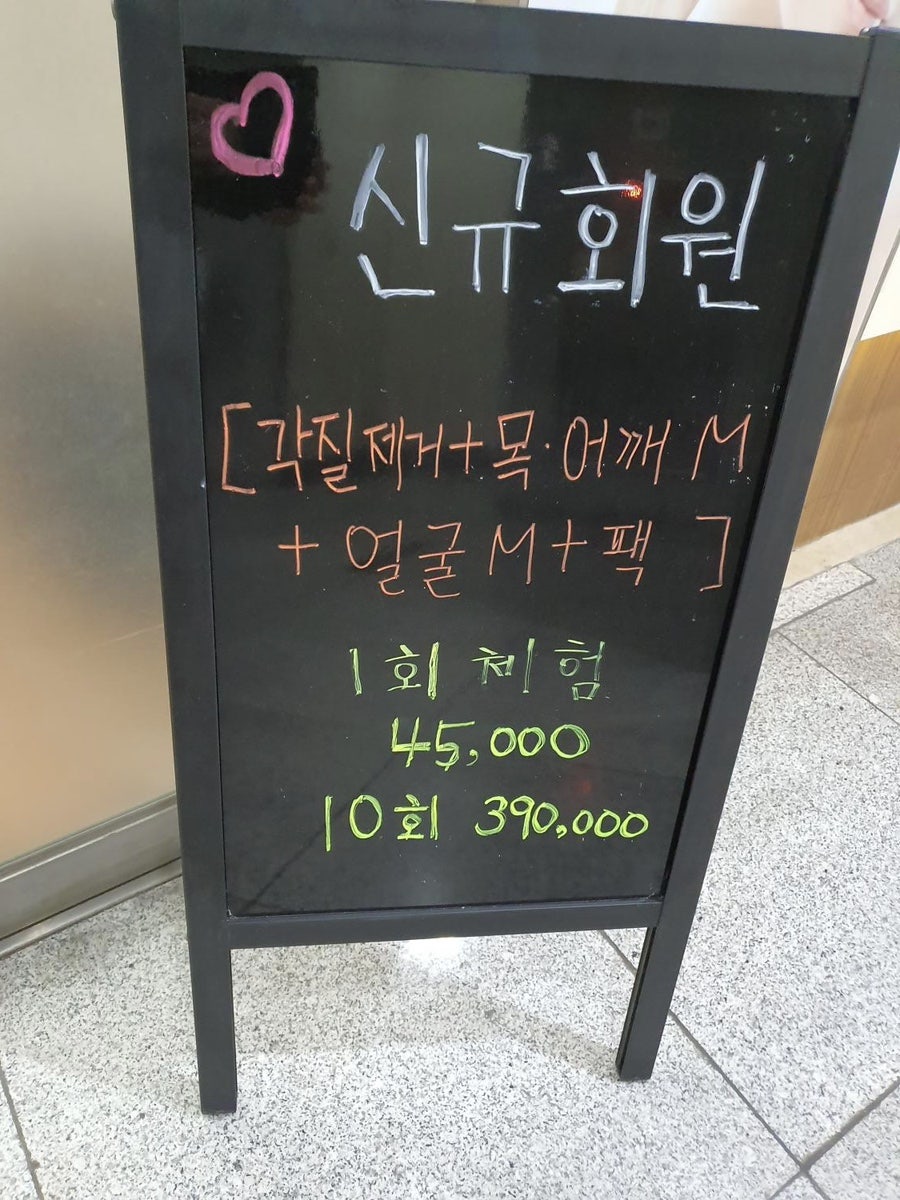 신규회원
[각질제거+목·어깨 M
+ 얼굴 M + 팩 ]
1회 체험
45,000
10회 390,000